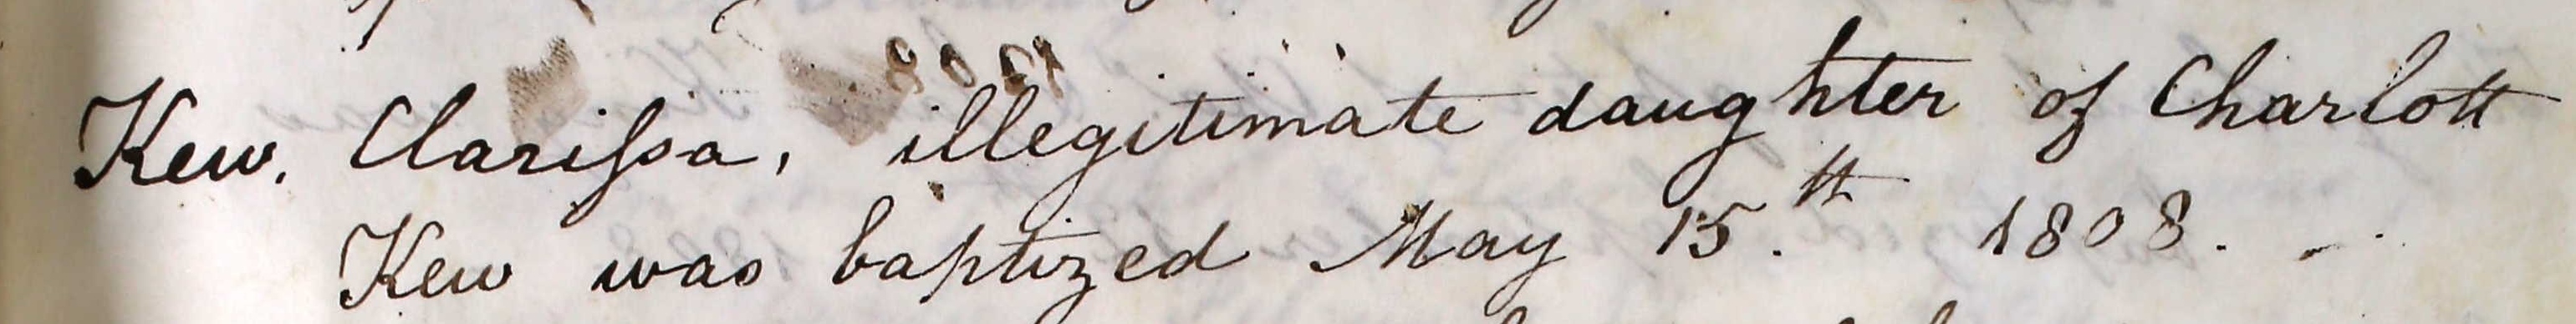 Kew. Clarifsa, illegitimate daughter of Charlott
Kew was baptized May 15.th 1808. -.